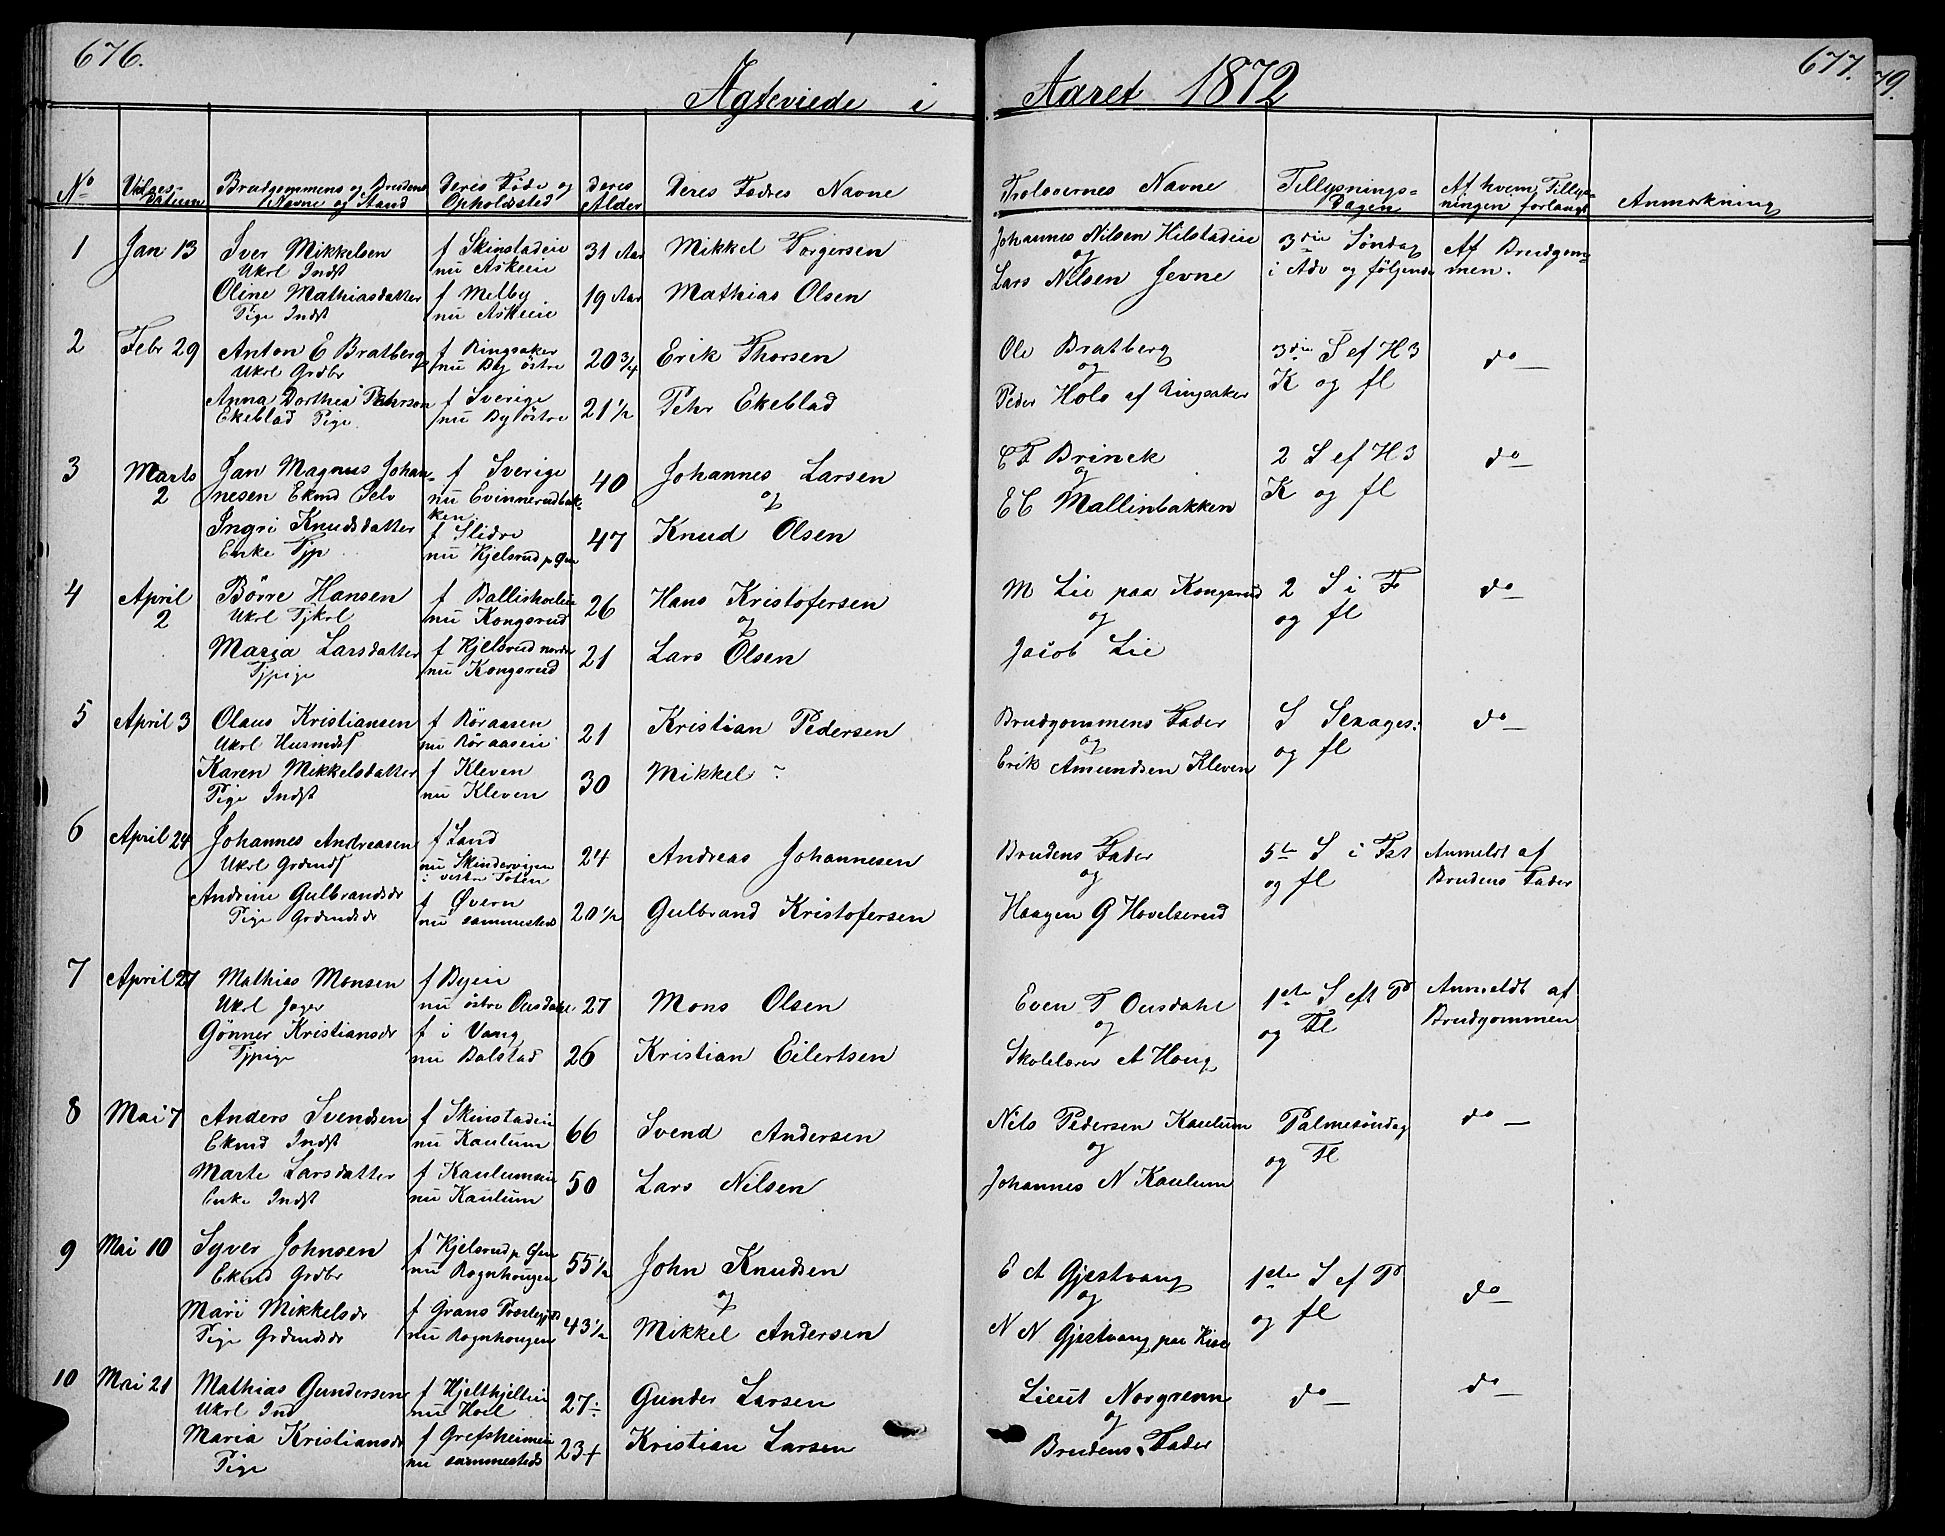 676.
Ægteviede i
Aaret 1872
677.
79.
No
Vielses-Datum
Brudgommens og Brudens Navne og Stand
Deres Føde og Opholdssted
Deres Alder
Deres Fædres Navne
Forlovernes Navne
Tillysnings-Dagen
Af hvem Tillysningen forlangt
Anmærkning
1 Jan 13 Iver Mikkelsen f Skinstadeie 31 Aar Mikkel Torgersen Johannes Nilsen Hilstadeie 3die Søndag Af Brudgom-
Ukrl Indst nu Askeie og i Adv og følgende men.
Oline Mathiasdatter f Melby 19 Aar Mathias Olsen Lars Nilsen Jevne
Pige Indst nu Askeie
2 Febr 29 Anton E Bratberg f Ringsaker 20 3/4 Erik Thorsen Ole Bratberg 3die S ef H3 do
Ukrl Grdbr nu By østre og K og fl
Anna Dorthea Pehrson f Sverige 21 1/2 Pehr Ekeblad Peder Holo af Ringsaker
Ekeblad Pige nu By østre
3 Marts Jan Magnus Johan- f Sverige 40 Johannes Larsen C F Brinck 2 S ef H3 do
2 nesen Ekmd Selv nu Evinnerudbak- og og K og fl
ken
Ingri Knudsdatter f Slidre 47 Knud Olsen E C Mallinbakken
Enke Tjp nu Kjelsrud
4 April Børre Hansen f Ballishoeleie 26 Hans Kristofersen M Lie paa Kongsrud 2 S i F do
2 Ukrl Tjkrl nu Kongsrud og og og fl
Maria Larsdatter f Kjelsrud nordre 21 Lars Olsen Jacob Lie
Tjpige nu Kongsrud
5 April 3 Olaus Kristiansen f Røraasen 21 Kristian Pedersen Brudgommens Fader S Sexages: do
Ukrl Husmdsf nu Røraaseie og og fl
Karen Mikkelsdatter f Kleven 30 Mikkel - Erik Amundsen Kleven
Pige Indst nu Kleven
6 April 24 Johannes Andreasen f Land 24 Andreas Johannesen Brudens Fader 5te S i Fst Anmeldt af
Ukrl Grdmdsf nu Skindervigen og og fl Brudens Fader
i vestre Toten
Andrine Gulbrandsdr f Øvern 20 1/2 Gulbrand Kristofersen Haagen G Hovelserud
Pige Grdmdsdr nu sammesteds
7 April 27 Mathias Monsen f Byeie 27 Mons Olsen Even T Ousdahl 1ste S eft P Anmeldt af
Ukrl Jæger nu østre Ousdahl og og Fl Brudgommen
Gønner Kristiansdr f i Vang 26 Kristian Eilertsen Skolelærer A Houg
Tjpige nu Dalstad
8 Mai 7 Anders Svendsen f Skinstadeie 66 Svend Andersen Nils Pedersen Kaulum Palmesøndag do
Ekmd Indst nu Kaulum og og Fl
Marte Larsdatter f Kaulumseie 50 Lars Nilsen Johannes N Kaulum
Enke Indst nu Kaulum
9 Mai 10 Syver Johnsen f Kjelsrud 55 1/2 John Knudsen E A Gjestvang 1ste S ef P do
Ekmd Grdbr nu Rognhougen og og og fl
Mari Mikkelsdr f Grans Præstegjd 43 1/2 Mikkel Andersen N N Gjestvang paa Kise
Pige Grdmdsdr nu Rognhougen
10 Mai 21 Mathias Gundersen f Hjelthjelteie 27 Gunder Larsen Lieut Norgrenn do do
Ukrl Ind nu Hoel og
Maria Kristiansdr f Grefsheimeie 23 Kristian Larsen Brudens Fader
Pige nu sammesteds